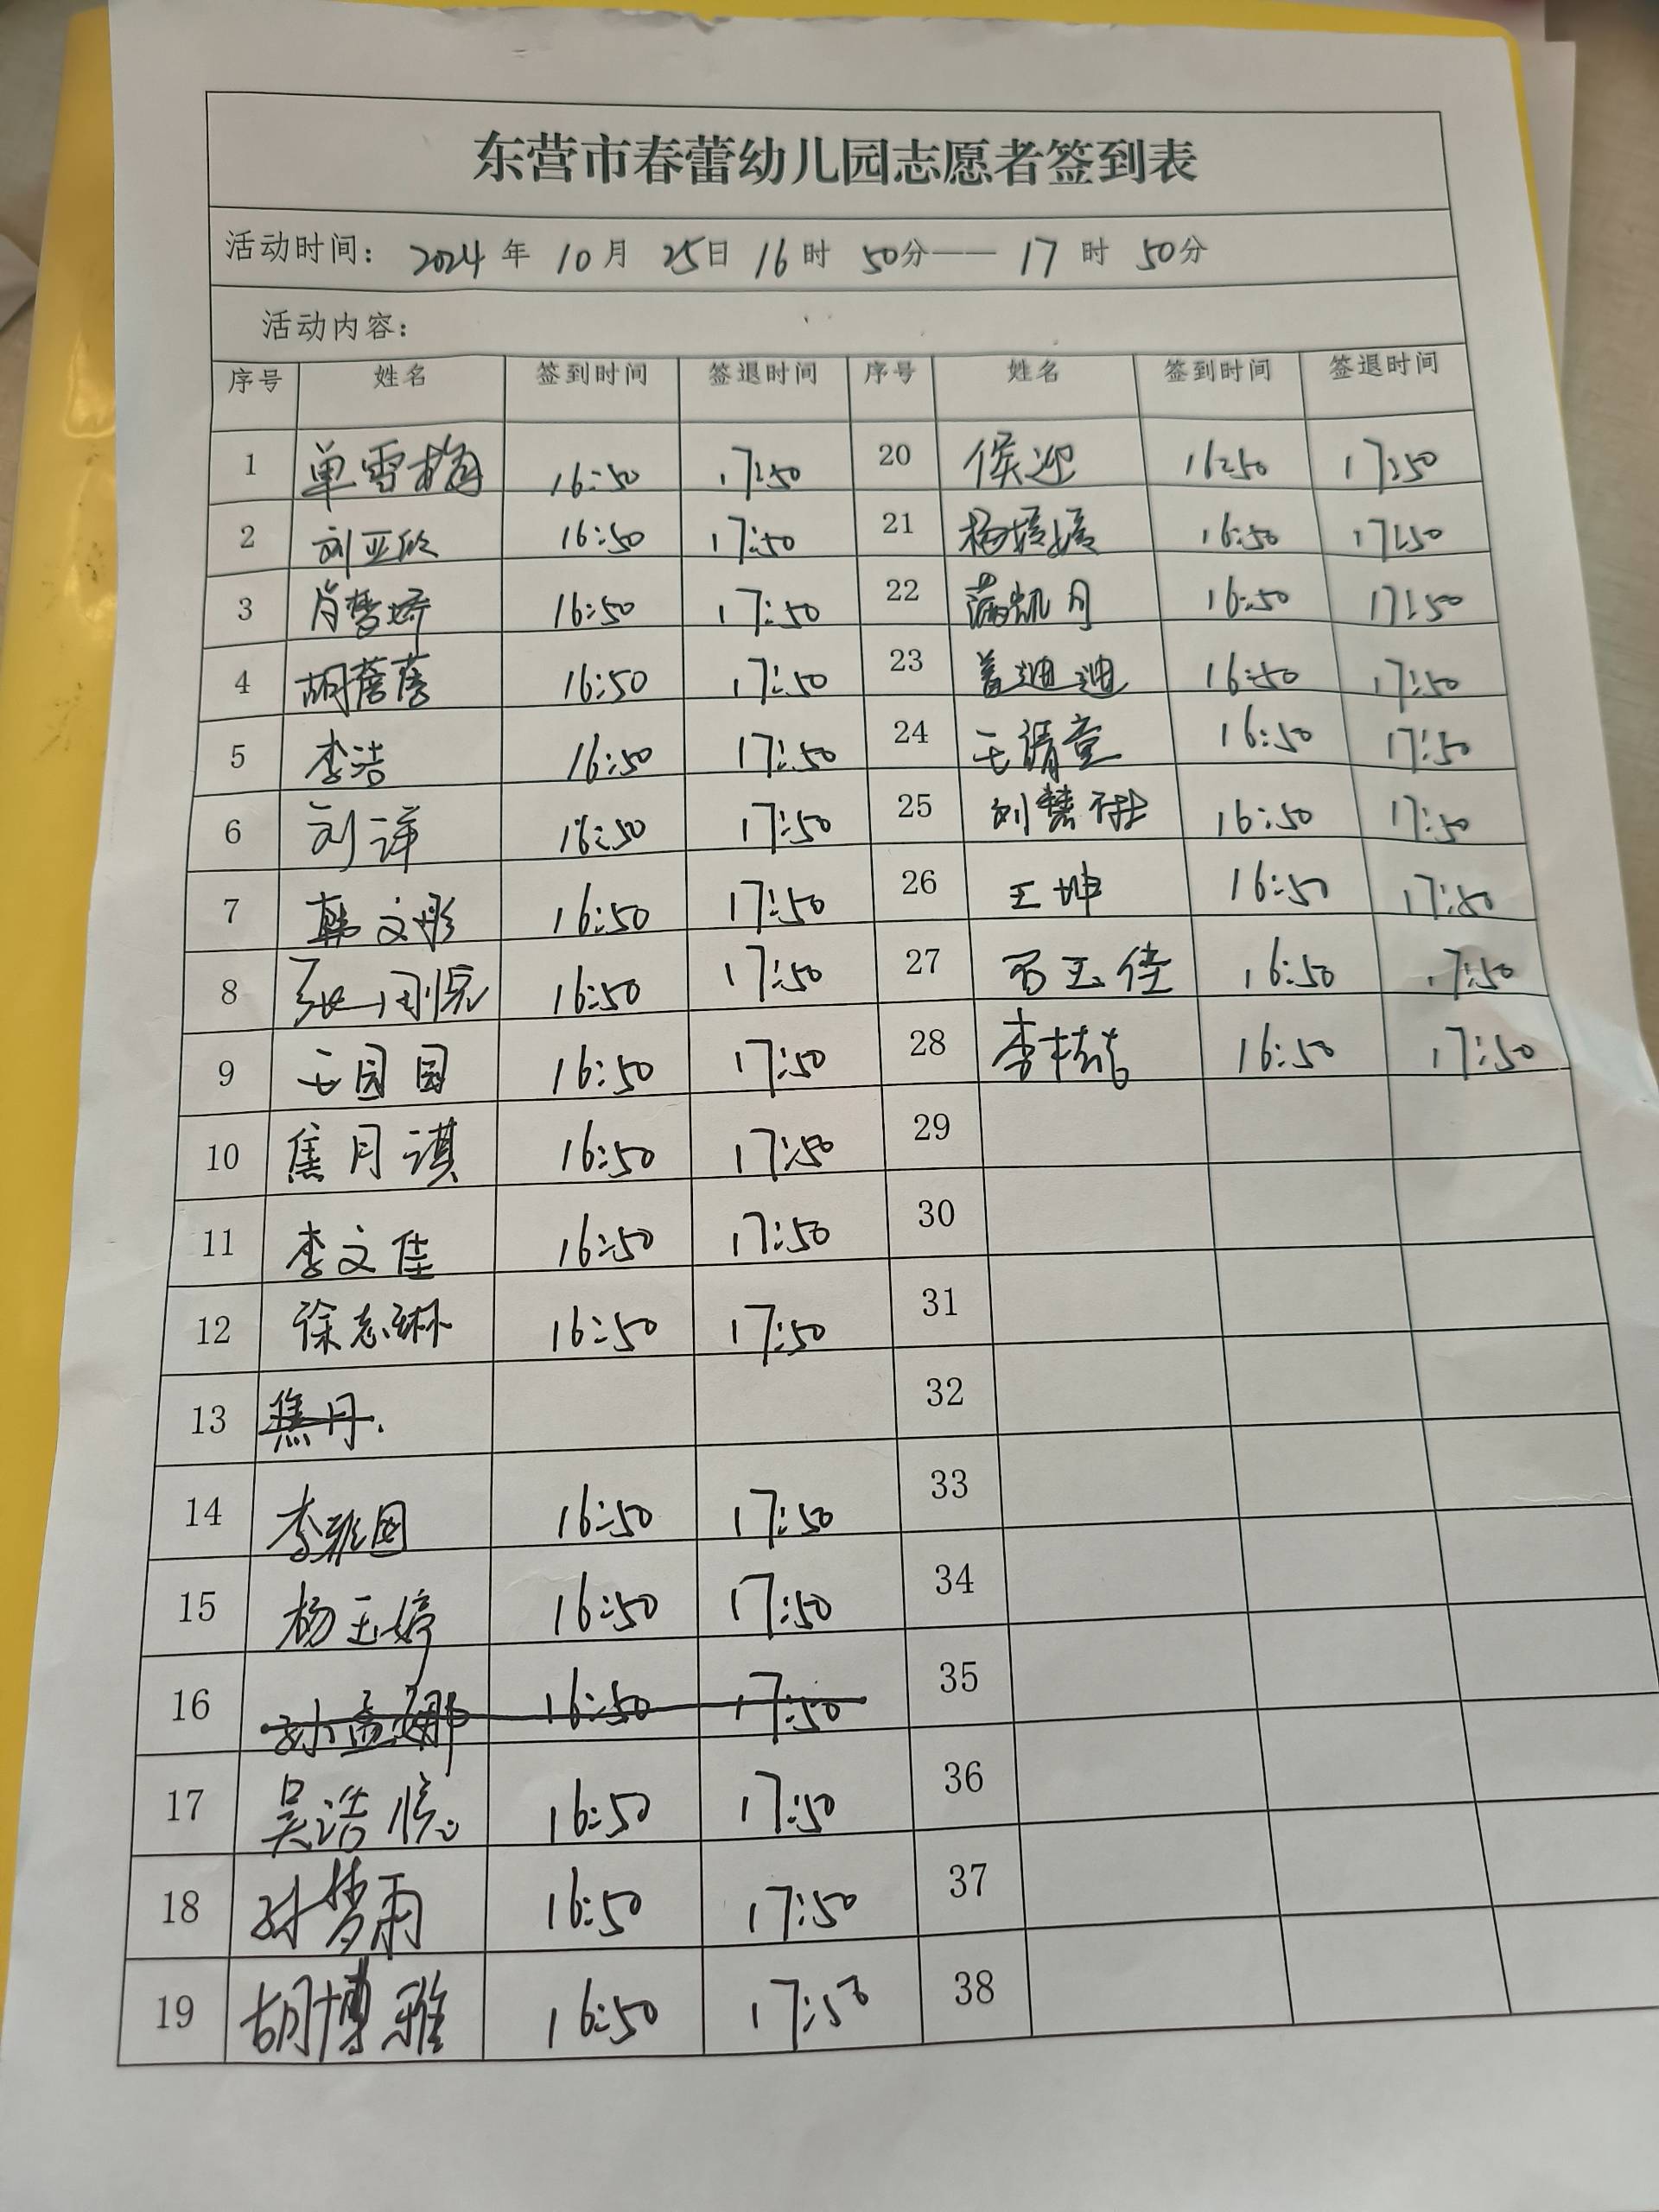 东营市春蕾幼儿园志愿者签到表
活动时间: 2024 年 10 月 25 日 16 时 50 分—— 17 时 50 分
活动内容:
序号 姓名 签到时间 签退时间 序号 姓名 签到时间 签退时间
1 单雪梅 16:50 17:50 20 侯迎 16:50 17:50
2 刘亚欣 16:50 17:50 21 杨婷婷 16:50 17:50
3 肖梦娇 16:50 17:50 22 蒲凯月 16:50 17:50
4 胡蓓蓓 16:50 17:50 23 盖迪迪 16:50 17:50
5 李洁 16:50 17:50 24 王靖童 16:50 17:50
6 刘洋 16:50 17:50 25 刘慧 16:50 17:50
7 韩文彤 16:50 17:50 26 王坤 16:50 17:50
8 张 16:50 17:50 27 玉佳 16:50 17:50
9 王园园 16:50 17:50 28 李 16:50 17:50
10 焦月淇 16:50 17:50 29
11 李文佳 16:50 17:50 30
12 徐志琳 16:50 17:50 31
13 焦丹. 32
14 李雅囡 16:50 17:50 33
15 杨玉婷 16:50 17:50 34
16 孙孟娜 16:50 17:50 35
17 吴浩悦 16:50 17:50 36
18 梦雨 16:50 17:50 37
19 胡博雅 16:50 17:50 38